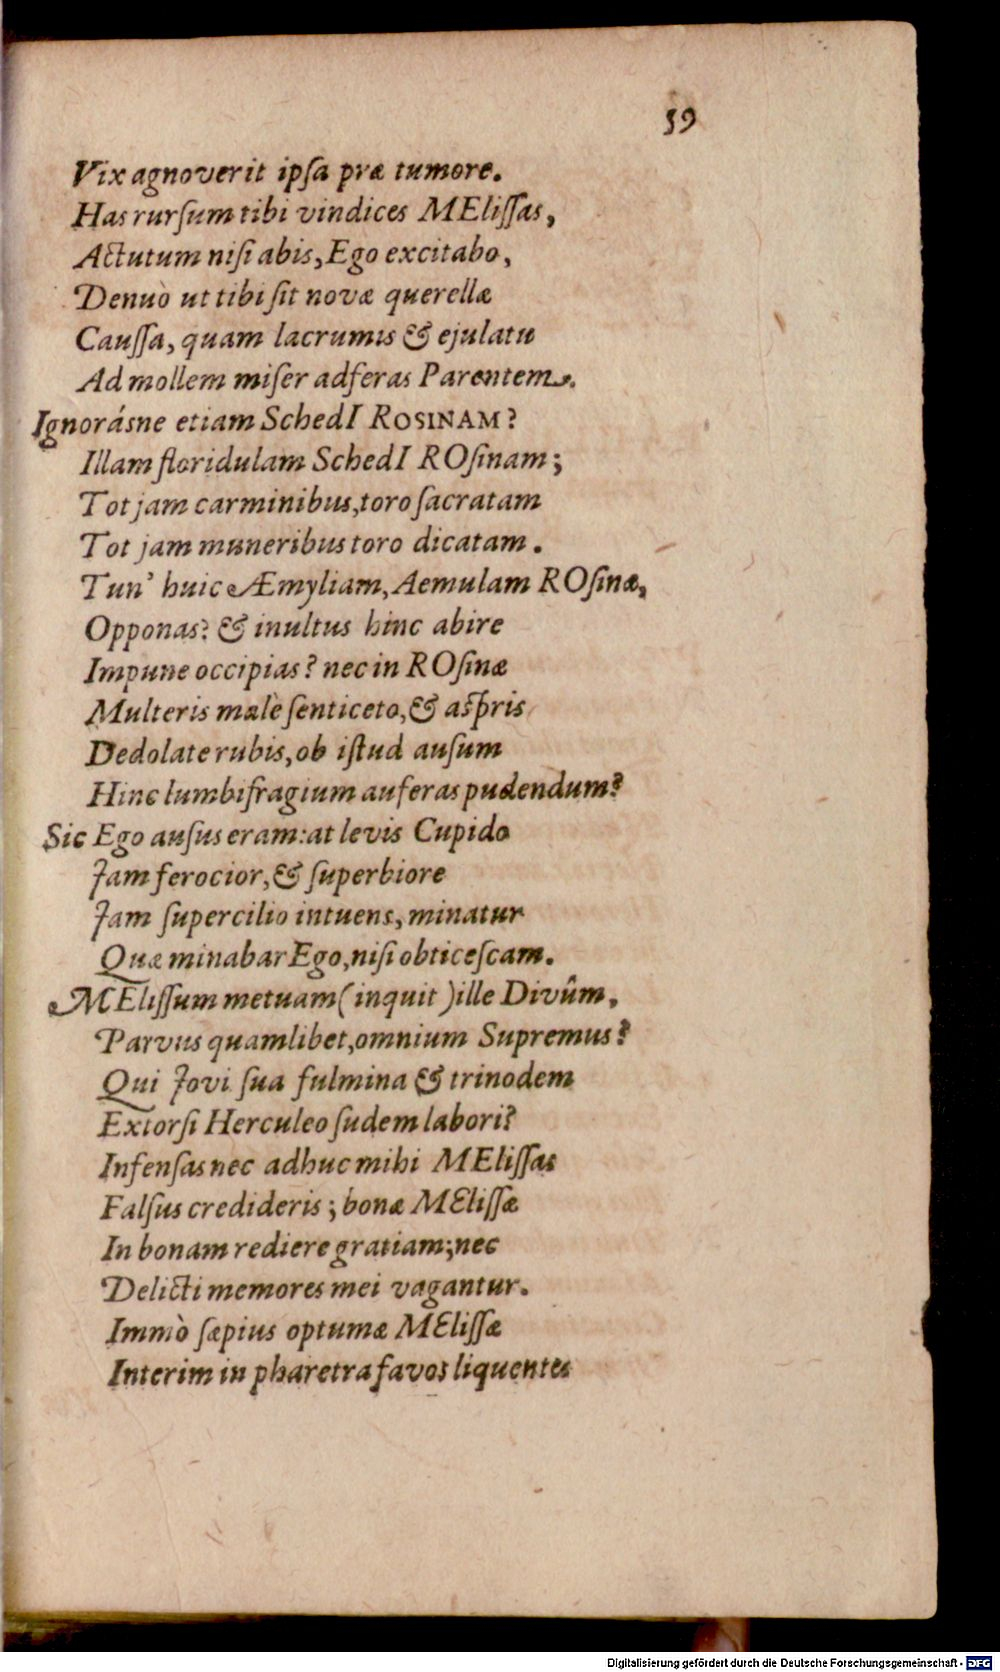 59
Vix agnoverit ipſa præ tumore.
Has rurſum tibi vindices MEliſſas,
Actutum niſi abis, Ego excitabo,
Denuò ut tibi ſit novæ querellæ
Cauſſa, quam lacrumis & ejulatu
Ad mollem miſer adferas Parentem.
Ignorásne etiam SchedI ROSINAM?
Illam floridulam SchedI ROſinam;
Tot jam carminibus, toro ſacratam
Tot jam muneribus toro dicatam.
Tun' huic Æmyliam, Aemulam ROſinæ,
Opponas? & inultus hinc abire
Impune occipias? nec in ROſinæ
Multeris malè ſenticeto, & aſpris
Dedolate rubis, ob iſtud auſum
Hinc lumbifragium auferas pudendum?
Sic Ego auſus eram: at levis Cupido
Jam ferocior, & ſuperbiore
Jam ſupercilio intuens, minatur
Quæ minabar Ego, niſi obticeſcam.
MEliſſum metuam (inquit) ille Divûm,
Parvus quamlibet, omnium Supremus?
Qui Jovi ſua fulmina & trinodem
Extorſi Herculeo ſudem labori?
Infenſas nec adhuc mihi MEliſſas
Falſus credideris; bonæ MEliſſæ
In bonam rediere gratiam; nec
Delicti memores mei vagantur.
Immò ſæpius optumæ MEliſſæ
Interim in pharetra favos liquentes
Digitalisierung gefördert durch die Deutsche Forschungsgemeinschaft - DFG